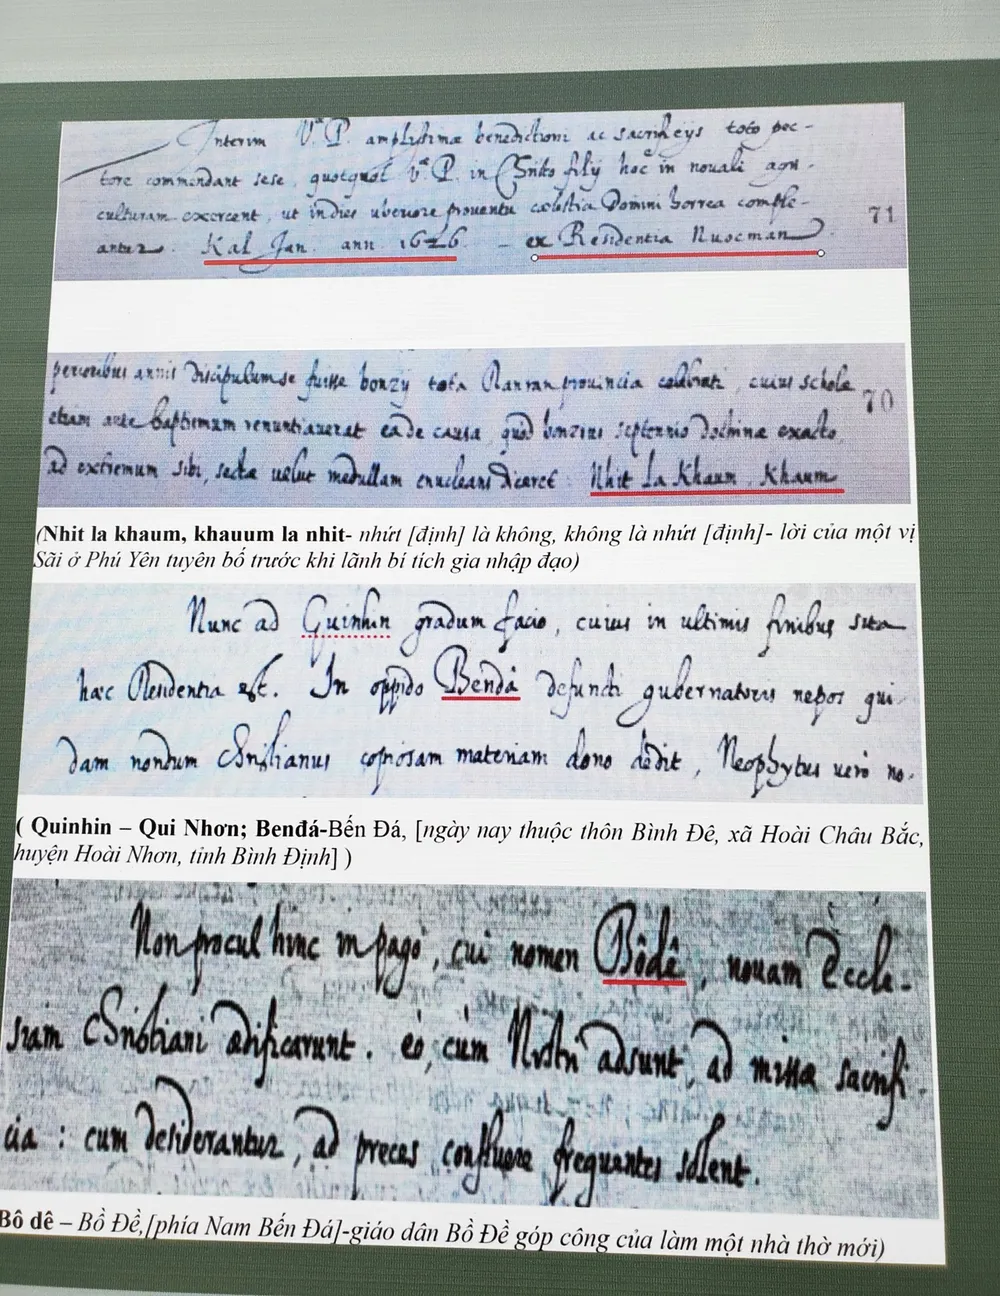 Interim V.ae P. amplissimæ benedictioni ac sacrificijs toto pec-
tore commendant sese, quotquot V.ae P. in Christo filij hoc in nouali agri-
culturam exercent, ut indies uberiore prouentu cælestia Domini horrea comple-
antur. Kal Jan. ann. 1626. – ex Residentia Nuocman.
71
annis discipulum se fuisse bonzij tota Ranran prouincia celebrati, cuius scholæ
etiam ante baptismum renuntiauerat ea de causa, quod bonzius septennio doctrinæ exacto,
70
ad extremum sibi, sectæ uelut medullam enucleans diceret: Nhit la Khaum, Khaum
(Nhit la khaum, khauum la nhit- nhứt [định] là không, không là nhứt [định]- lời của một vị
Sãi ở Phú Yên tuyên bố trước khi lãnh bí tích gia nhập đạo)
Nunc ad Quinhin gradum facio, cuius in ultimis finibus sita
hæc Residentia est. In oppido Bendá defuncti gubernatoris nepos qui-
dam nondum Christianus copiosam materiam dono dedit, Neophytus uero no-
( Quinhin – Qui Nhơn; Benđá-Bến Đá, [ngày nay thuộc thôn Bình Đê, xã Hoài Châu Bắc,
huyện Hoài Nhơn, tỉnh Bình Định] )
Non procul hinc in pago, cui nomen Bôdê, nouam Eccle-
siam Christiani ædificarunt. eò, cum Nostri adsunt, ad missæ sacrifi-
cia: cum desiderantur, ad preces confluere frequentes solent.
Bô dê – Bồ Đề,[phía Nam Bến Đá]-giáo dân Bồ Đề góp công của làm một nhà thờ mới)